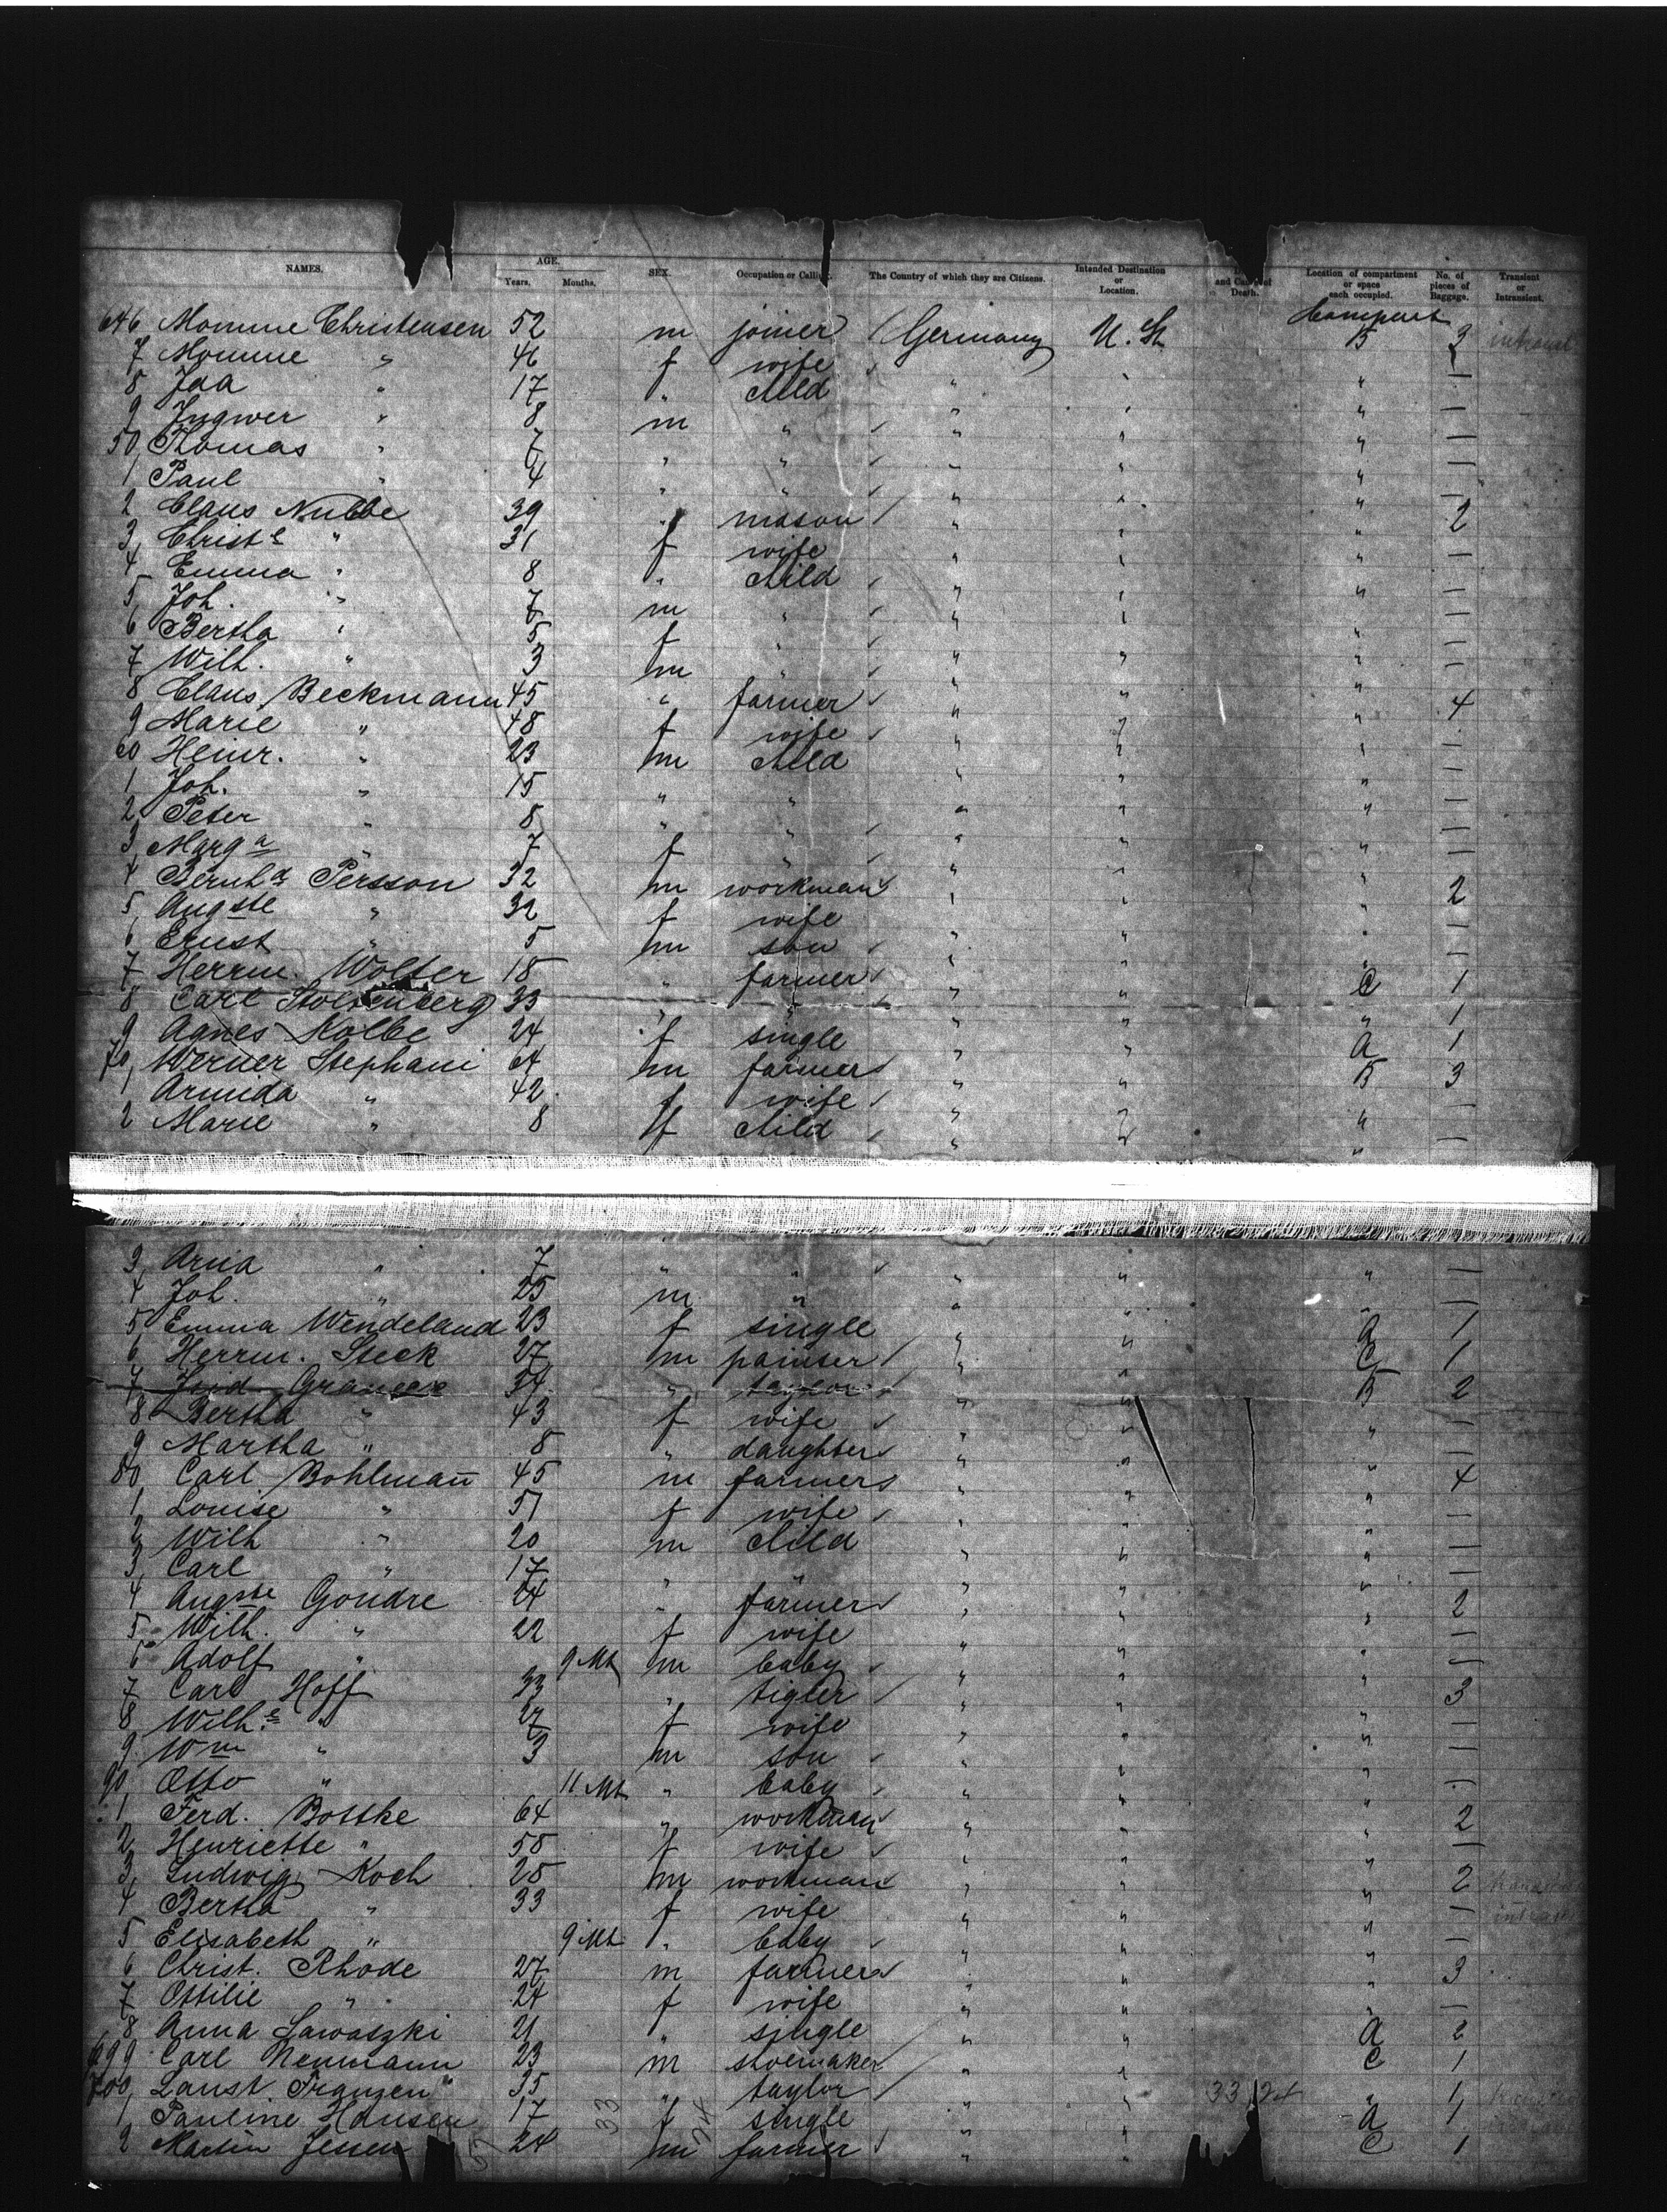 NAMES. AGE. Years. Months. SEX. Occupation or Calling. The Country of which they are Citizens. Intended Destination or Location. and Cause of Death. Location of compartment or space each occupied. No. of pieces of Baggage. Transient or Intransient.
646 Momme Christensen 52 m joiner Germany U. St. Compart B 3
7 Momme " 46 f wife " " " —
8 Ida " 17 " child " " " —
9 Ingwer " 8 m " " " " —
50 Thomas " 7 " " " " " —
1 Paul " 4 " " " " " —
2 Claus Nubbe 39 " mason " " " 2
3 Christe " 31 f wife " " " —
4 Emma " 8 " child " " " —
5 Joh. " 7 m " " " " —
6 Bertha " 5 f " " " " —
7 Wilh. " 3 m " " " " —
8 Claus Beckmann 45 " farmer " " " 4
9 Marie " 48 f wife " " " —
60 Heinr. " 23 m child " " " —
1 Joh. " 15 " " " " " —
2 Peter " 8 " " " " " —
3 Marga " 7 f " " " " —
4 Bernhd Persson 32 m workman " " " 2
5 Augste " 32 f wife " " " —
6 Ernst " 5 m son " " " —
7 Herrm. Wolter 18 " farmer " " C 1
8 Carl Stolzenberg 33 " " " " " 1
9 Agnes Kolbe 24 f single " " A 1
70 Werner Stephani m farmer " " B 3
1 Armida " 42 f wife " " " —
2 Marie " 8 f child " " " —
3 " 7 " " " " " —
4 Joh. " 25 m " " " " —
5 Emma Wendeland 23 f single " " A 1
6 Herrm. Steck 27 m painter " " C 1
7 34 " taylor " " B 2
8 Bertha " 43 f wife " " " —
9 Martha " 8 " daughter " " " —
80 Carl Bohlmañ 45 m farmer " " " 4
1 Louise " 51 f wife " " " —
2 Wilh " 20 m child " " " —
3 Carl " 17 " " " " " —
4 Augste Goudre 24 " farmer " " " 2
5 Wilh. " 22 f wife " " " —
6 Adolf " 9 Mt m baby " " " —
7 Carl Hoff 33 " tigler " " " 3
8 Wilhe " 27 f wife " " " —
9 Wm " 3 m son " " " —
90 Otto " 11 Mt " baby " " " —
1 Ferd. Bottke 64 " workman " " " 2
2 Henriette " 58 f wife " " " —
3 Ludwig Koch 28 m workman " " " 2
4 Bertha " 33 f wife " " " —
5 Elisabeth " 9 Mt " baby " " " —
6 Christ. Rhode 27 m farmer " " " 3
7 Ottilie " 24 f wife " " " —
8 Anna Lawatzki 21 " single " " A 2
699 Carl Neumann 23 m shoemaker " " C 1
700 Laust. Franzen 35 " taylor " " " 1
1 Pauline Hansen 17 f single " " A 1
2 Martin Jessen 24 m farmer " " C 1